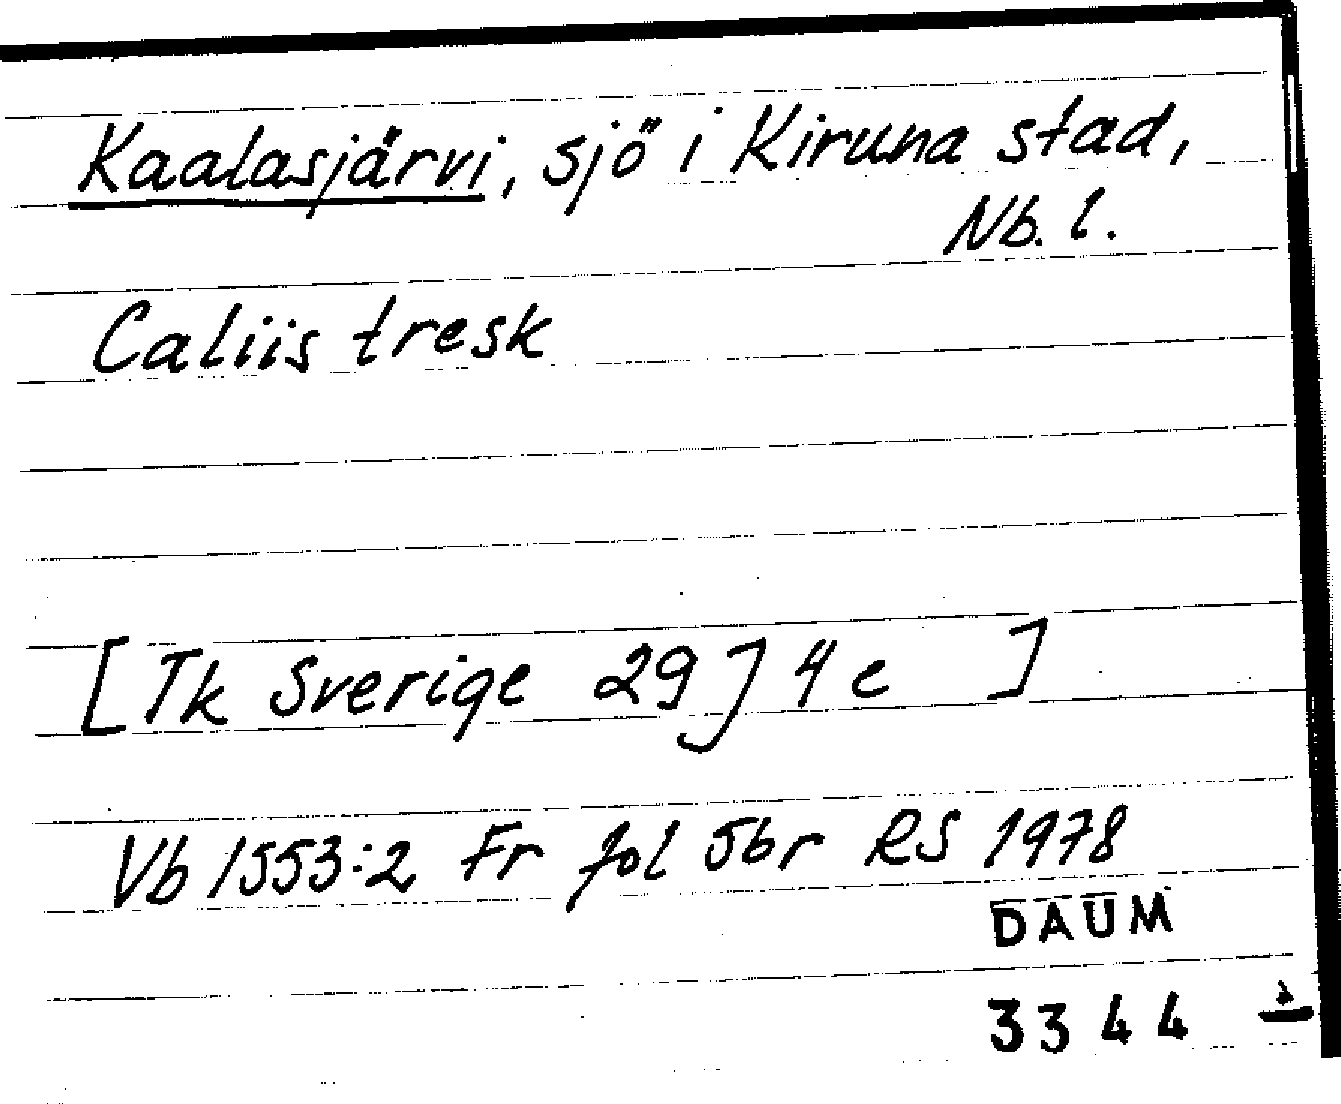 Kaalasjärvi, sjö i Kiruna stad,
Nb. l.
Caliis tresk
[Tk Sverige 29 J 4 e ]
Vb 1553:2 Fr fol 56r RS 1978
DAUM
3344